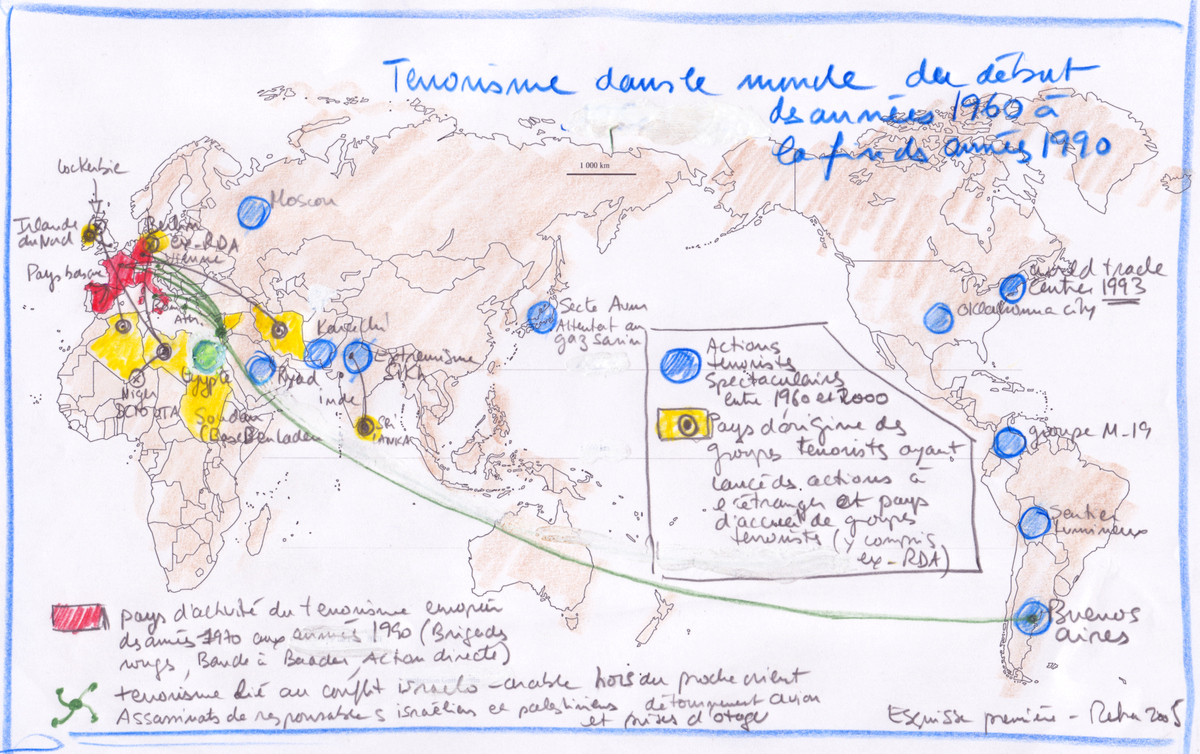 Terrorisme dans le monde du début
des années 1960 à
la fin des années 1990
1 000 km
Lockerbie
Irlande
du Nord
Berlin
ex-RDA
Vienne
Pays basque
Moscou
Rome
Ath
Karachi
Extrémisme
SIKH
Egypte
Ryad
Inde
Niger
DC10 UTA
Soudan
(Base Ben Laden
SRI
LANKA
Secte Aum
Attentat au
gaz sarin
World trade
Center 1993
Oklahoma city
groupe M-19
Sentier
Lumineux
Buenos
aires
Actions
terroristes
Spectaculaires
entre 1960 et 2000
Pays d'origine des
groupes terroristes ayant
lancé des actions à
l'étranger et pays
d'accueil de groupes
terroristes (y compris
ex-RDA)
pays d'activité du terrorisme européen
des années 1970 aux années 1990 (Brigades
rouges, Bande à Baader, Action directe)
terrorisme lié au conflit israélo-arabe hors du proche orient
Assassinats de responsables israéliens et palestiniens détournement avion
et prises d'otage
Esquisse première - Reka 2005